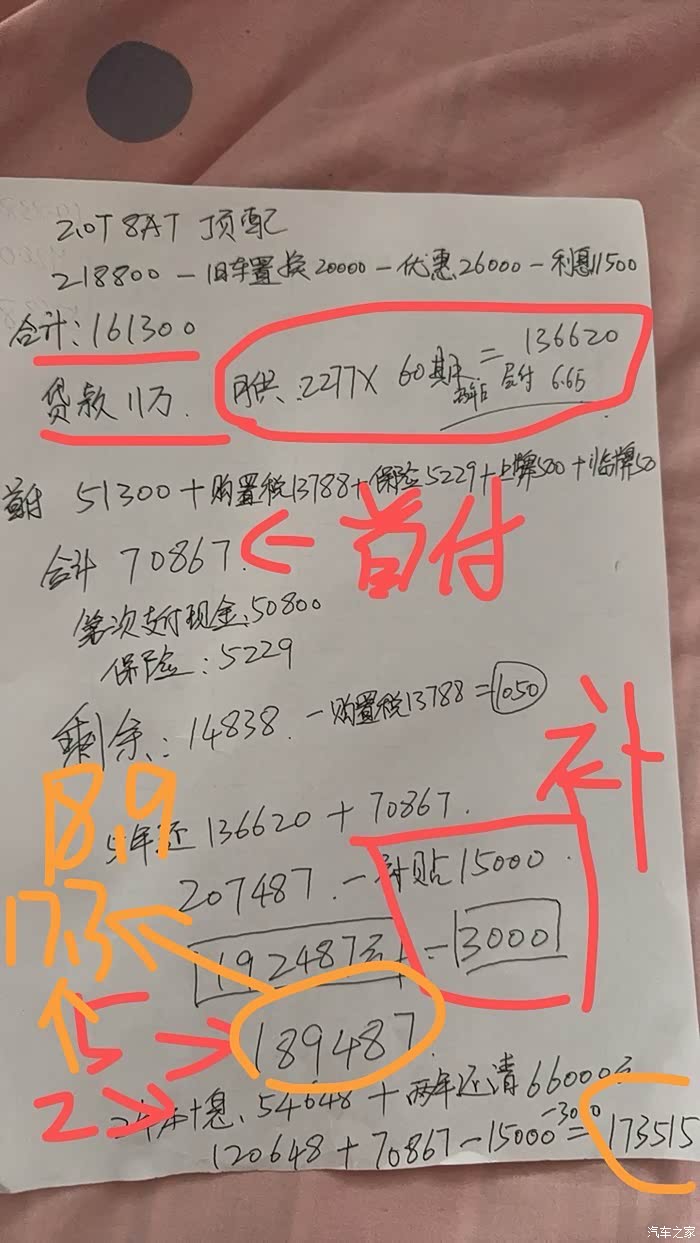 2.0T 8AT 顶配
218800 - 旧车置换20000 - 优惠26000 - 利息11500
合计:161300
月供:2277X 60期 = 136620
贷款11万. 后付 6.65
首付 51300 + 购置税13788 + 保险5229 + 上牌500 + 临牌50
合计 70867. ← 首付
第次支付现金:50800
保险:5229
剩余:14838. - 购置税13788 = 1050
补
18.9
5年还 136620 + 70867.
207487. - 补贴15000.
17.3
192487元 - 3000
5 → 189487.
2 → 2年本+息:54648 + 两年还清66000元
-3000
120648 + 70867 - 15000 = 173515
汽车之家